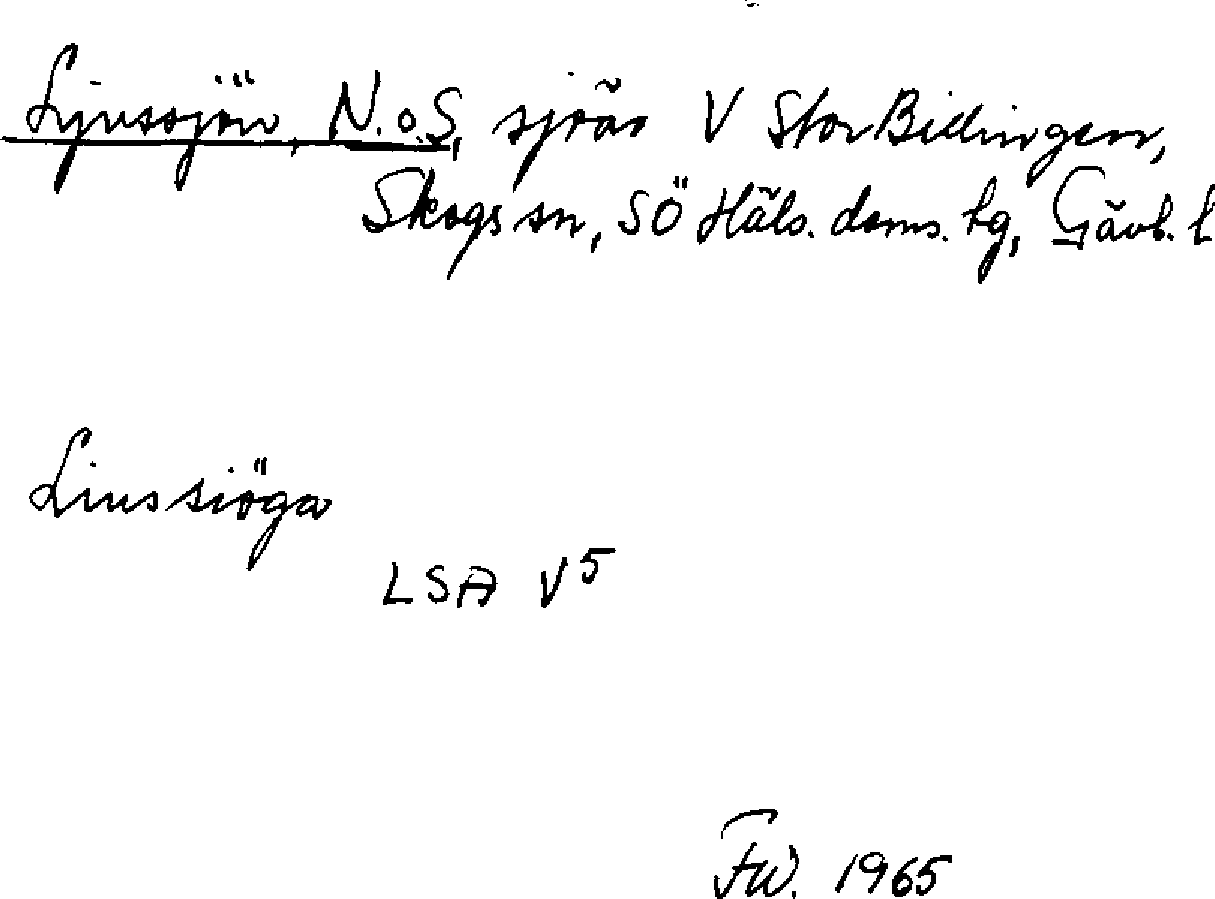 Ljussjön, N.o.S, sjöar V Stor Bidingen,
Skogs sn, SÖ Häls. doms. tg, Gävl. l
Liussiöga
LSA V5
FW. 1965